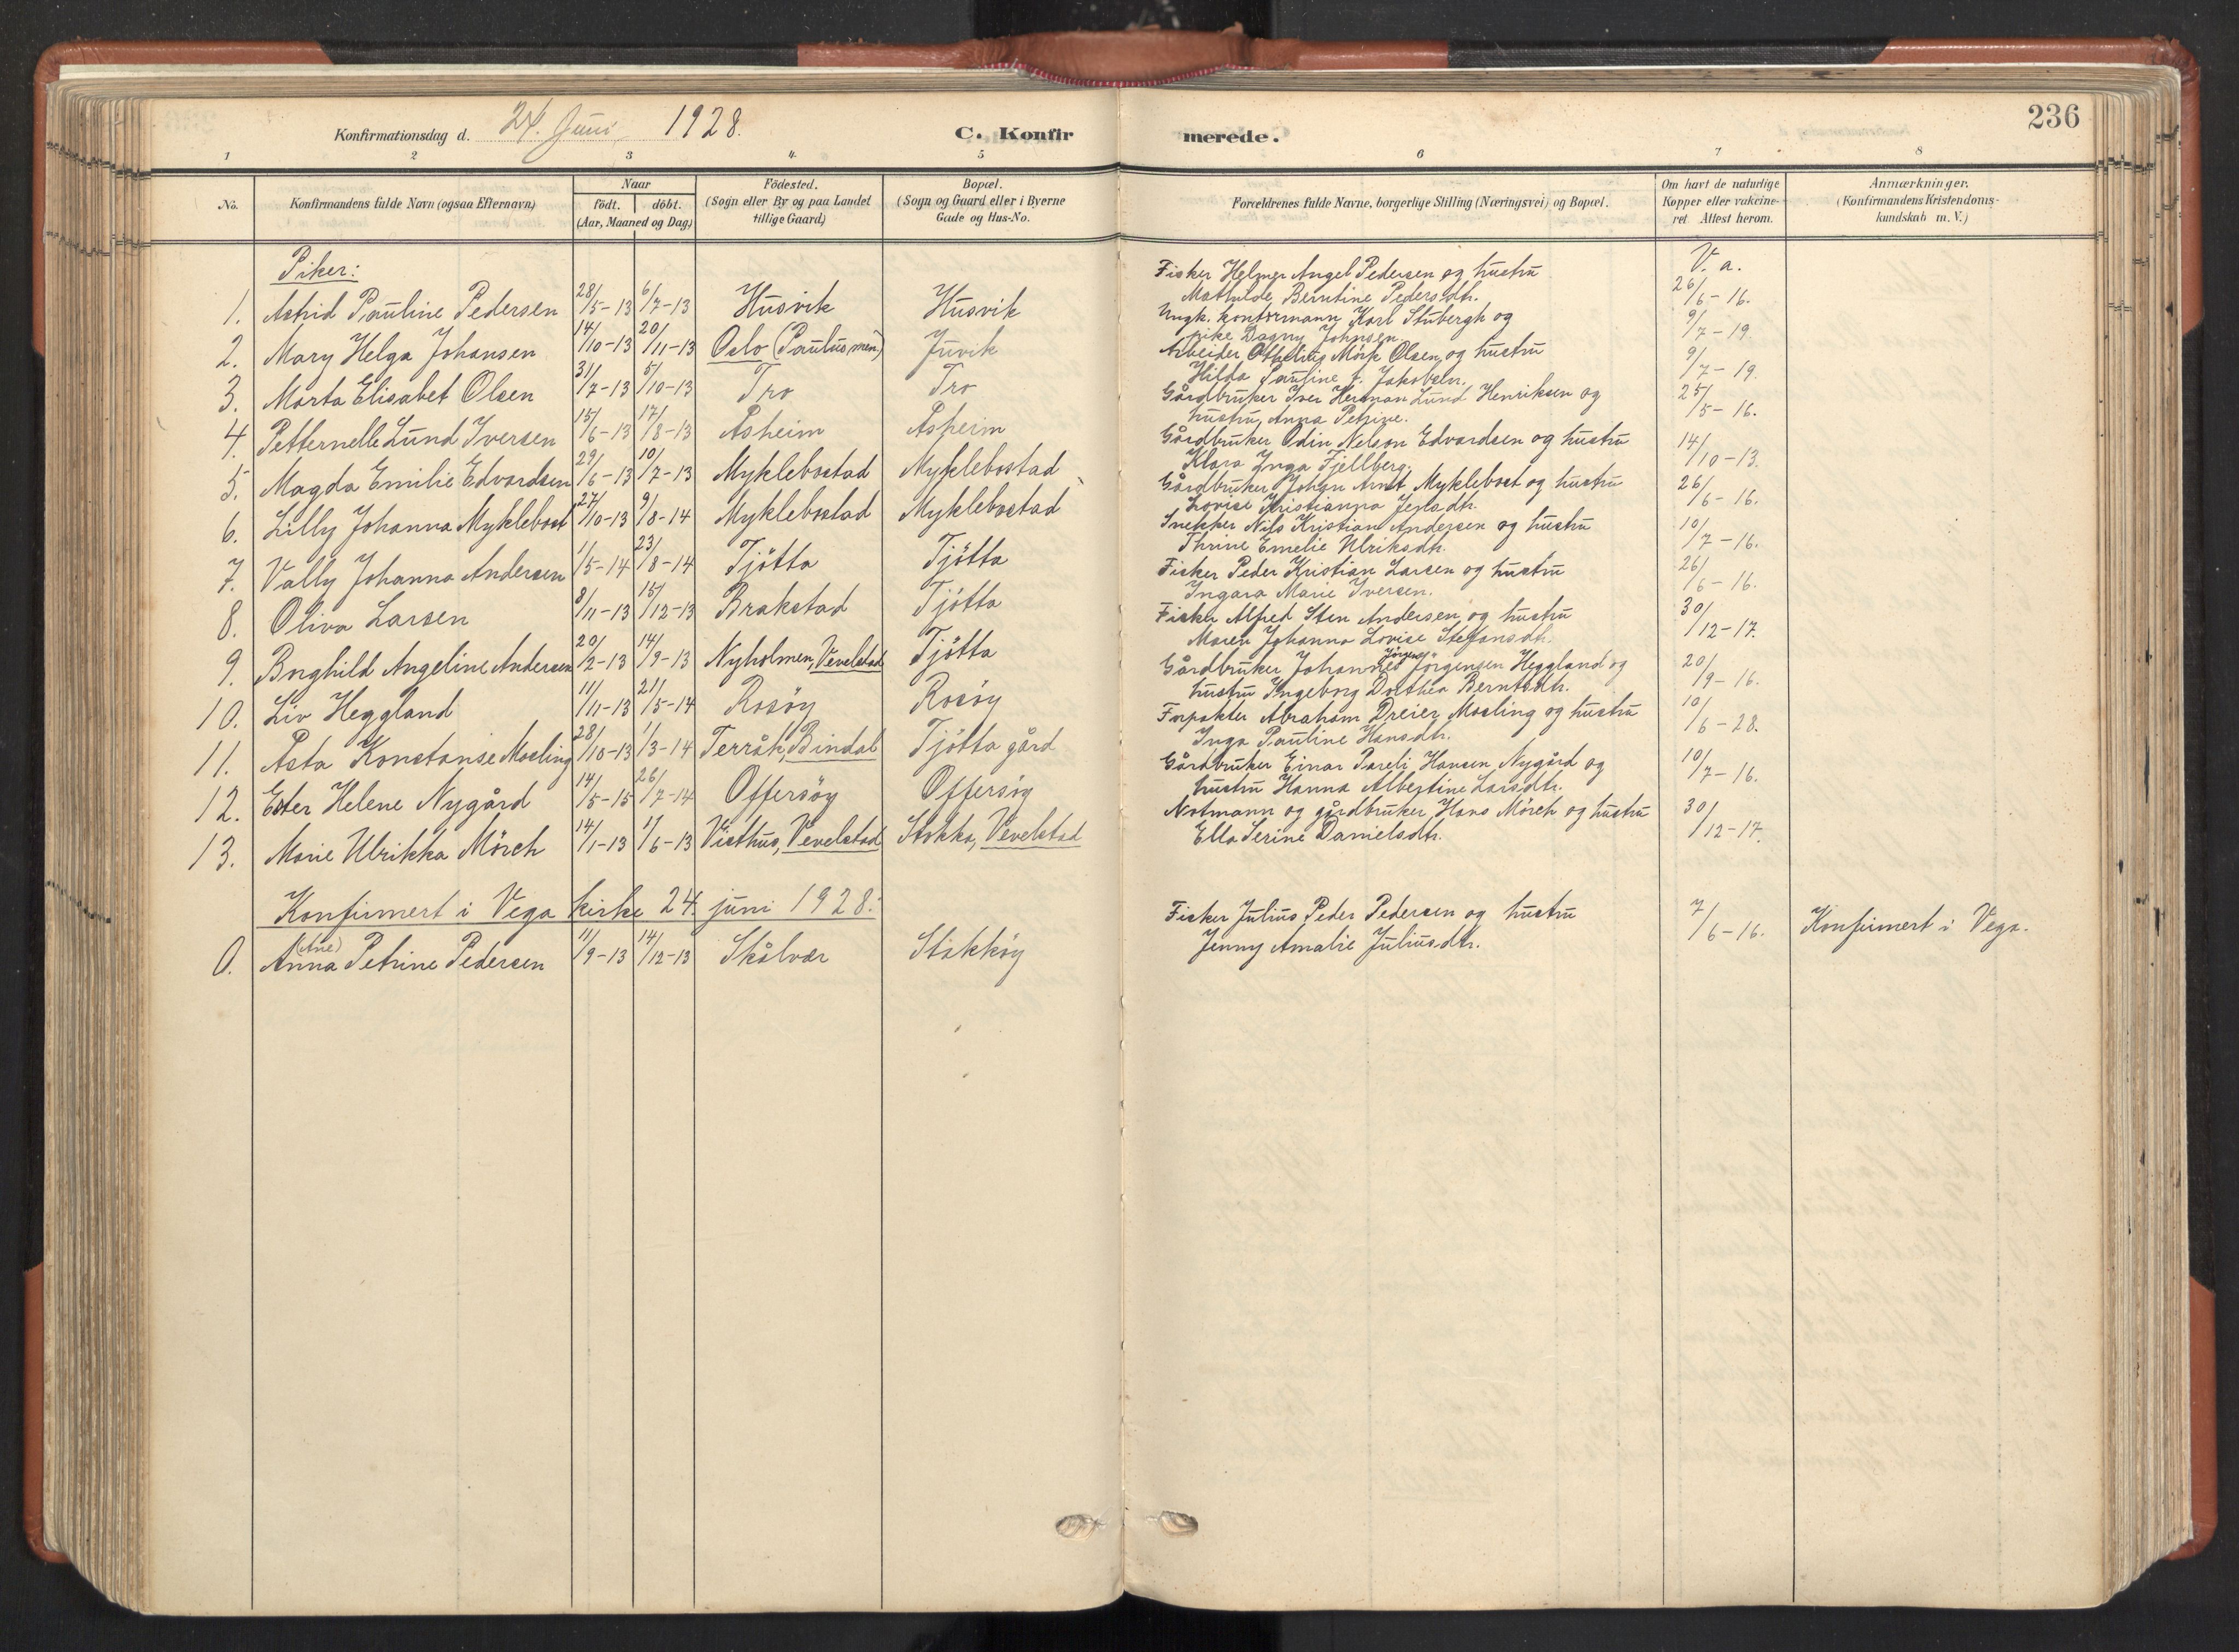 236
Konfirmationsdag d. 24. Juni 1928.
C. Konfirmerede.
1 2 3 4 5 6 7 8
No.
Konfirmandens fulde Navn (ogsaa Efternavn)
Naar
født. døbt.
(Aar, Maaned og Dag)
Födested.
(Sogn eller By og paa Landet
tillige Gaard)
Bopæl.
(Sogn og Gaard eller i Byerne
Gade og Hus-No.
Forældrenes fulde Navne, borgerlige Stilling (Næringsvei) og Bopæl.
Om havt de naturlige
Kopper eller vakcine-
ret. Attest herom.
Anmærkninger.
(Konfirmandens Kristendoms-
kundskab m. V.)
Piker:
V. a.
1. Astrid Pauline Pedersen 28/5-13 6/7-13 Husvik Husvik
Fisker Helmer Angel Pedersen og hustru
Mathilde Berntine Pedersdtr.
26/6-16.
2. Mary Helga Johansen 14/10-13 20/11-13 Oslo (Paulus men) Juvik
Ungk. kontormann Karl Stubergh og
pike Dagny Johnsen
9/7-19
3. Marta Elisabet Olsen 31/7-13 5/10-13 Tro Tro
Arbeider Othelius Mörk Olsen og hustru
Hilda Pauline f. Jakobsen.
9/7-19.
4. Petternelle Lund Iversen 15/6-13 17/8-13 Åsheim Åsheim
Gårdbruker Iver Herman Lund Henriksen og
hustru Anna Petrine.
25/5-16.
5. Magda Emilie Edvardsen 29/6-13 10/7-13 Myklebostad Myklebostad
Gårdbruker Odin Nelson Edvardsen og hustru
Klara Inga Fjellberg.
14/10-13.
6. Lilly Johanna Myklebost 27/10-13 9/8-14 Myklebostad Myklebostad
Gårdbruker Johan Arnt Myklebost og hustru
Lovise Kristianna Jensdtr.
26/6-16.
7. Vally Johanna Andersen 1/5-14 23/8-14 Tjötta Tjötta
Snekker Nils Kristian Andersen og hustru
Thrine Emelie Ulriksdtr.
10/7-16.
8. Oliva Larsen 8/11-13 15/12-13 Brakstad Tjötta
Fisker Peder Kristian Larsen og hustru
Ingara Marie Iversen.
26/6-16.
9. Borghild Angeline Andersen 20/2-13 14/9-13 Nyholmen, Vevelstad Tjötta
Fisker Alfred Sten Andersen og hustru
Maren Johanna Lovise Stefansdtr.
30/12-17.
10. Liv Heggland 11/11-13 21/5-14 Rosöy Rosöy
Gårdbruker Johannes Jörgen Jörgensen Heggland og
hustru Ingeborg Dorthea Berntsdtr.
20/9-16.
11. Asta Konstanse Mosling 28/10-13 1/3-14 Terråk, Bindal Tjötta gård
Forpakter Abraham Dreier Mosling og hustru
Inga Pauline Hansdtr.
10/6-28.
12. Ester Helene Nygård 14/5-15 26/7-14 Offersöy Offersöy
Gårdbruker Einar Pareli Hansen Nygård og
hustru Hanna Albertine Larsdtr.
10/7-16.
13. Marie Ulrikka Mörch 14/1-13 1/6-13 Visthus, Vevelstad Stokka, Vevelstad
Notmann og gårdbruker Hans Mörch og hustru
Ella Serine Danielsdtr.
30/12-17.
Konfirmert i Vega kirke 24. juni 1928.
0. Anna (Ane) Petrine Pedersen 11/9-13 14/12-13 Skålvær Stokköy
Fisker Julius Peder Pedersen og hustru
Jenny Amalie Juliusdtr.
7/6-16.
Konfirmert i Vega.